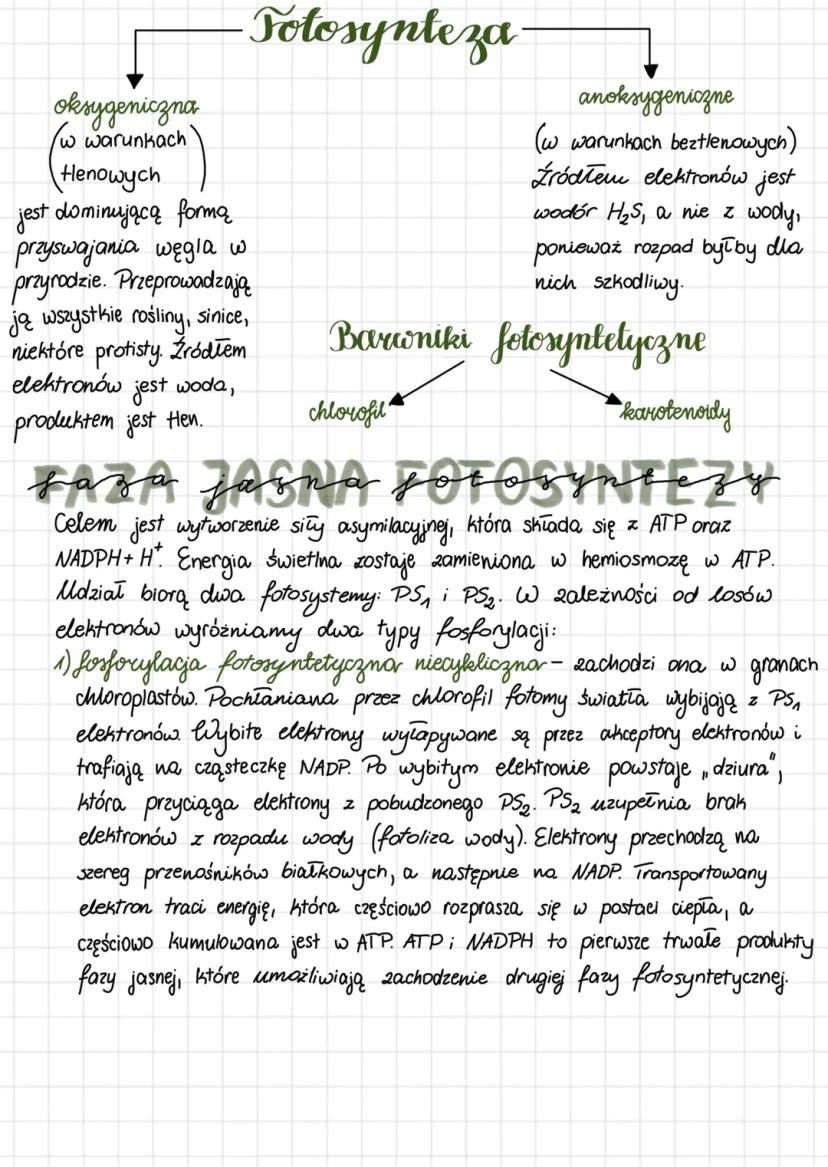 Fotosynteza
oksygeniczna
(w warunkach
tlenowych)
jest dominującą formą
przyswajania węgla w
przyrodzie. Przeprowadzają
ją wszystkie rośliny, sinice,
niektóre protisty. Źródłem
elektronów jest woda,
produktem jest tlen.
anoksygeniczne
(w warunkach beztlenowych)
Źródłem elektronów jest
wodór H₂S, a nie z wody,
ponieważ rozpad byłby dla
nich szkodliwy.
Barwniki fotosyntetyczne
chlorofil
karotenoidy
FAZA JASNA FOTOSYNTEZY
faza jasna fotosyntezy
Celem jest wytworzenie siły asymilacyjnej, która składa się z ATP oraz
NADPH + H⁺. Energia świetlna zostaje zamieniona w hemiosmozę w ATP.
Udział biorą dwa fotosystemy: PS₁ i PS₂. W zależności od losów
elektronów wyróżniamy dwa typy fosforylacji:
1) fosforylacja fotosyntetyczna niecykliczna - zachodzi ona w granach
chloroplastów. Pochłaniana przez chlorofil fotomy światła wybijają z PS₁
elektronów. Wybite elektrony wyłapywane są przez akceptory elektronów i
trafiają na cząsteczkę NADP. Po wybitym elektronie powstaje „dziura",
która przyciąga elektrony z pobudzonego PS₂. PS₂ uzupełnia brak
elektronów z rozpadu wody (fotoliza wody). Elektrony przechodzą na
szereg przenośników białkowych, a następnie na NADP. Transportowany
elektron traci energię, która częściowo rozprasza się w postaci ciepła, a
częściowo kumulowana jest w ATP. ATP i NADPH to pierwsze trwałe produkty
fazy jasnej, które umożliwiają zachodzenie drugiej fazy fotosyntetycznej.